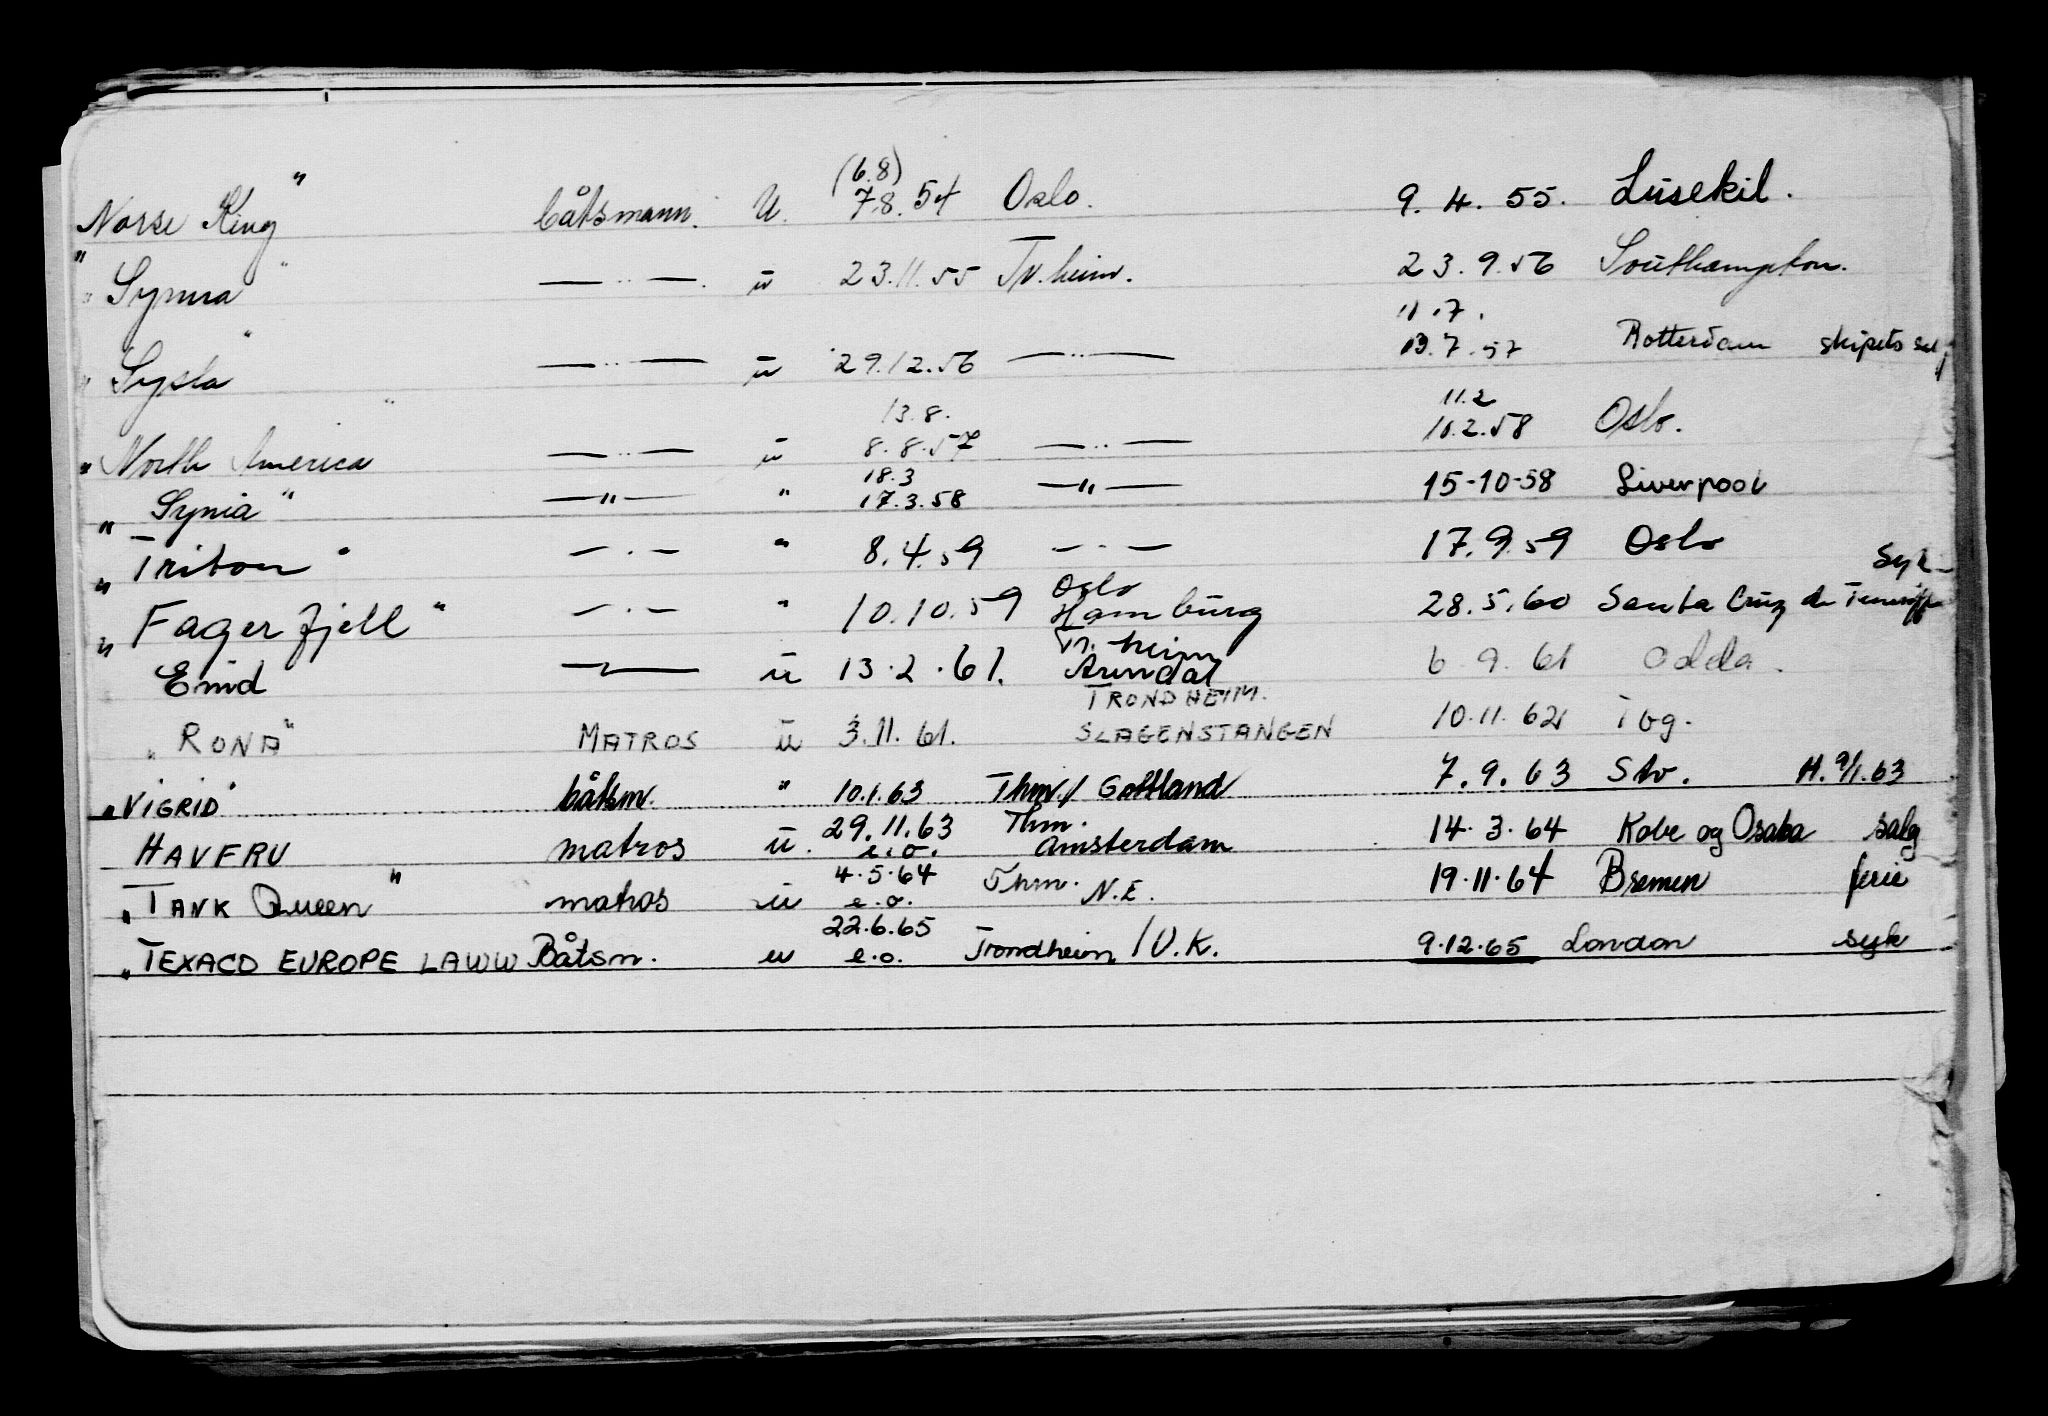 (6.8)
"Norse King" båtsmann. U. 7.8.54 Oslo. 9.4.55. Lusekil.
"Synra" —..—. u 23.11.55 Tr.heim. 23.9.56 Southampton.
11.7.
"Sysla" —..— u 29.12.56 —..— 13.7.57 Rotterdam skipets salg
13.8. 11.2
"North America" —..— u 8.8.57 —..— 10.2.58 Oslo.
18.3
"Synia" —"— " 17.3.58 —"— 15-10-58 Liverpool
"Triton" —.— " 8.4.59 —.— 17.9.59 Oslo
Oslo Syk-
"Fagerfjell" —.— " 10.10.59 Hamburg 28.5.60 Santa Cruz de Teneriffe
Tr.heim
Enid — u 13.2.61. Arendal 6.9.61 Odda.
TRONDHEIM.
"RONA" MATROS u 3.11.61. SLAGENSTANGEN 10.11.62 Tbg.
"VIGRID" båtsm. " 10.1.63 Thm./ Gottland 7.9.63 Stv. H. 9/1.63
29.11.63 Thm.
HAVFRU matros u. e.o. Amsterdam 14.3.64 Kobe og Osaka salg
4.5.64 Thm.
"TANK Queen" matros u e.o. N.E. 19.11.64 Bremen ferie
22.6.65
"TEXACO EUROPE LAWW Båtsm. u e.o. Trondheim / U.K. 9.12.65 London syk